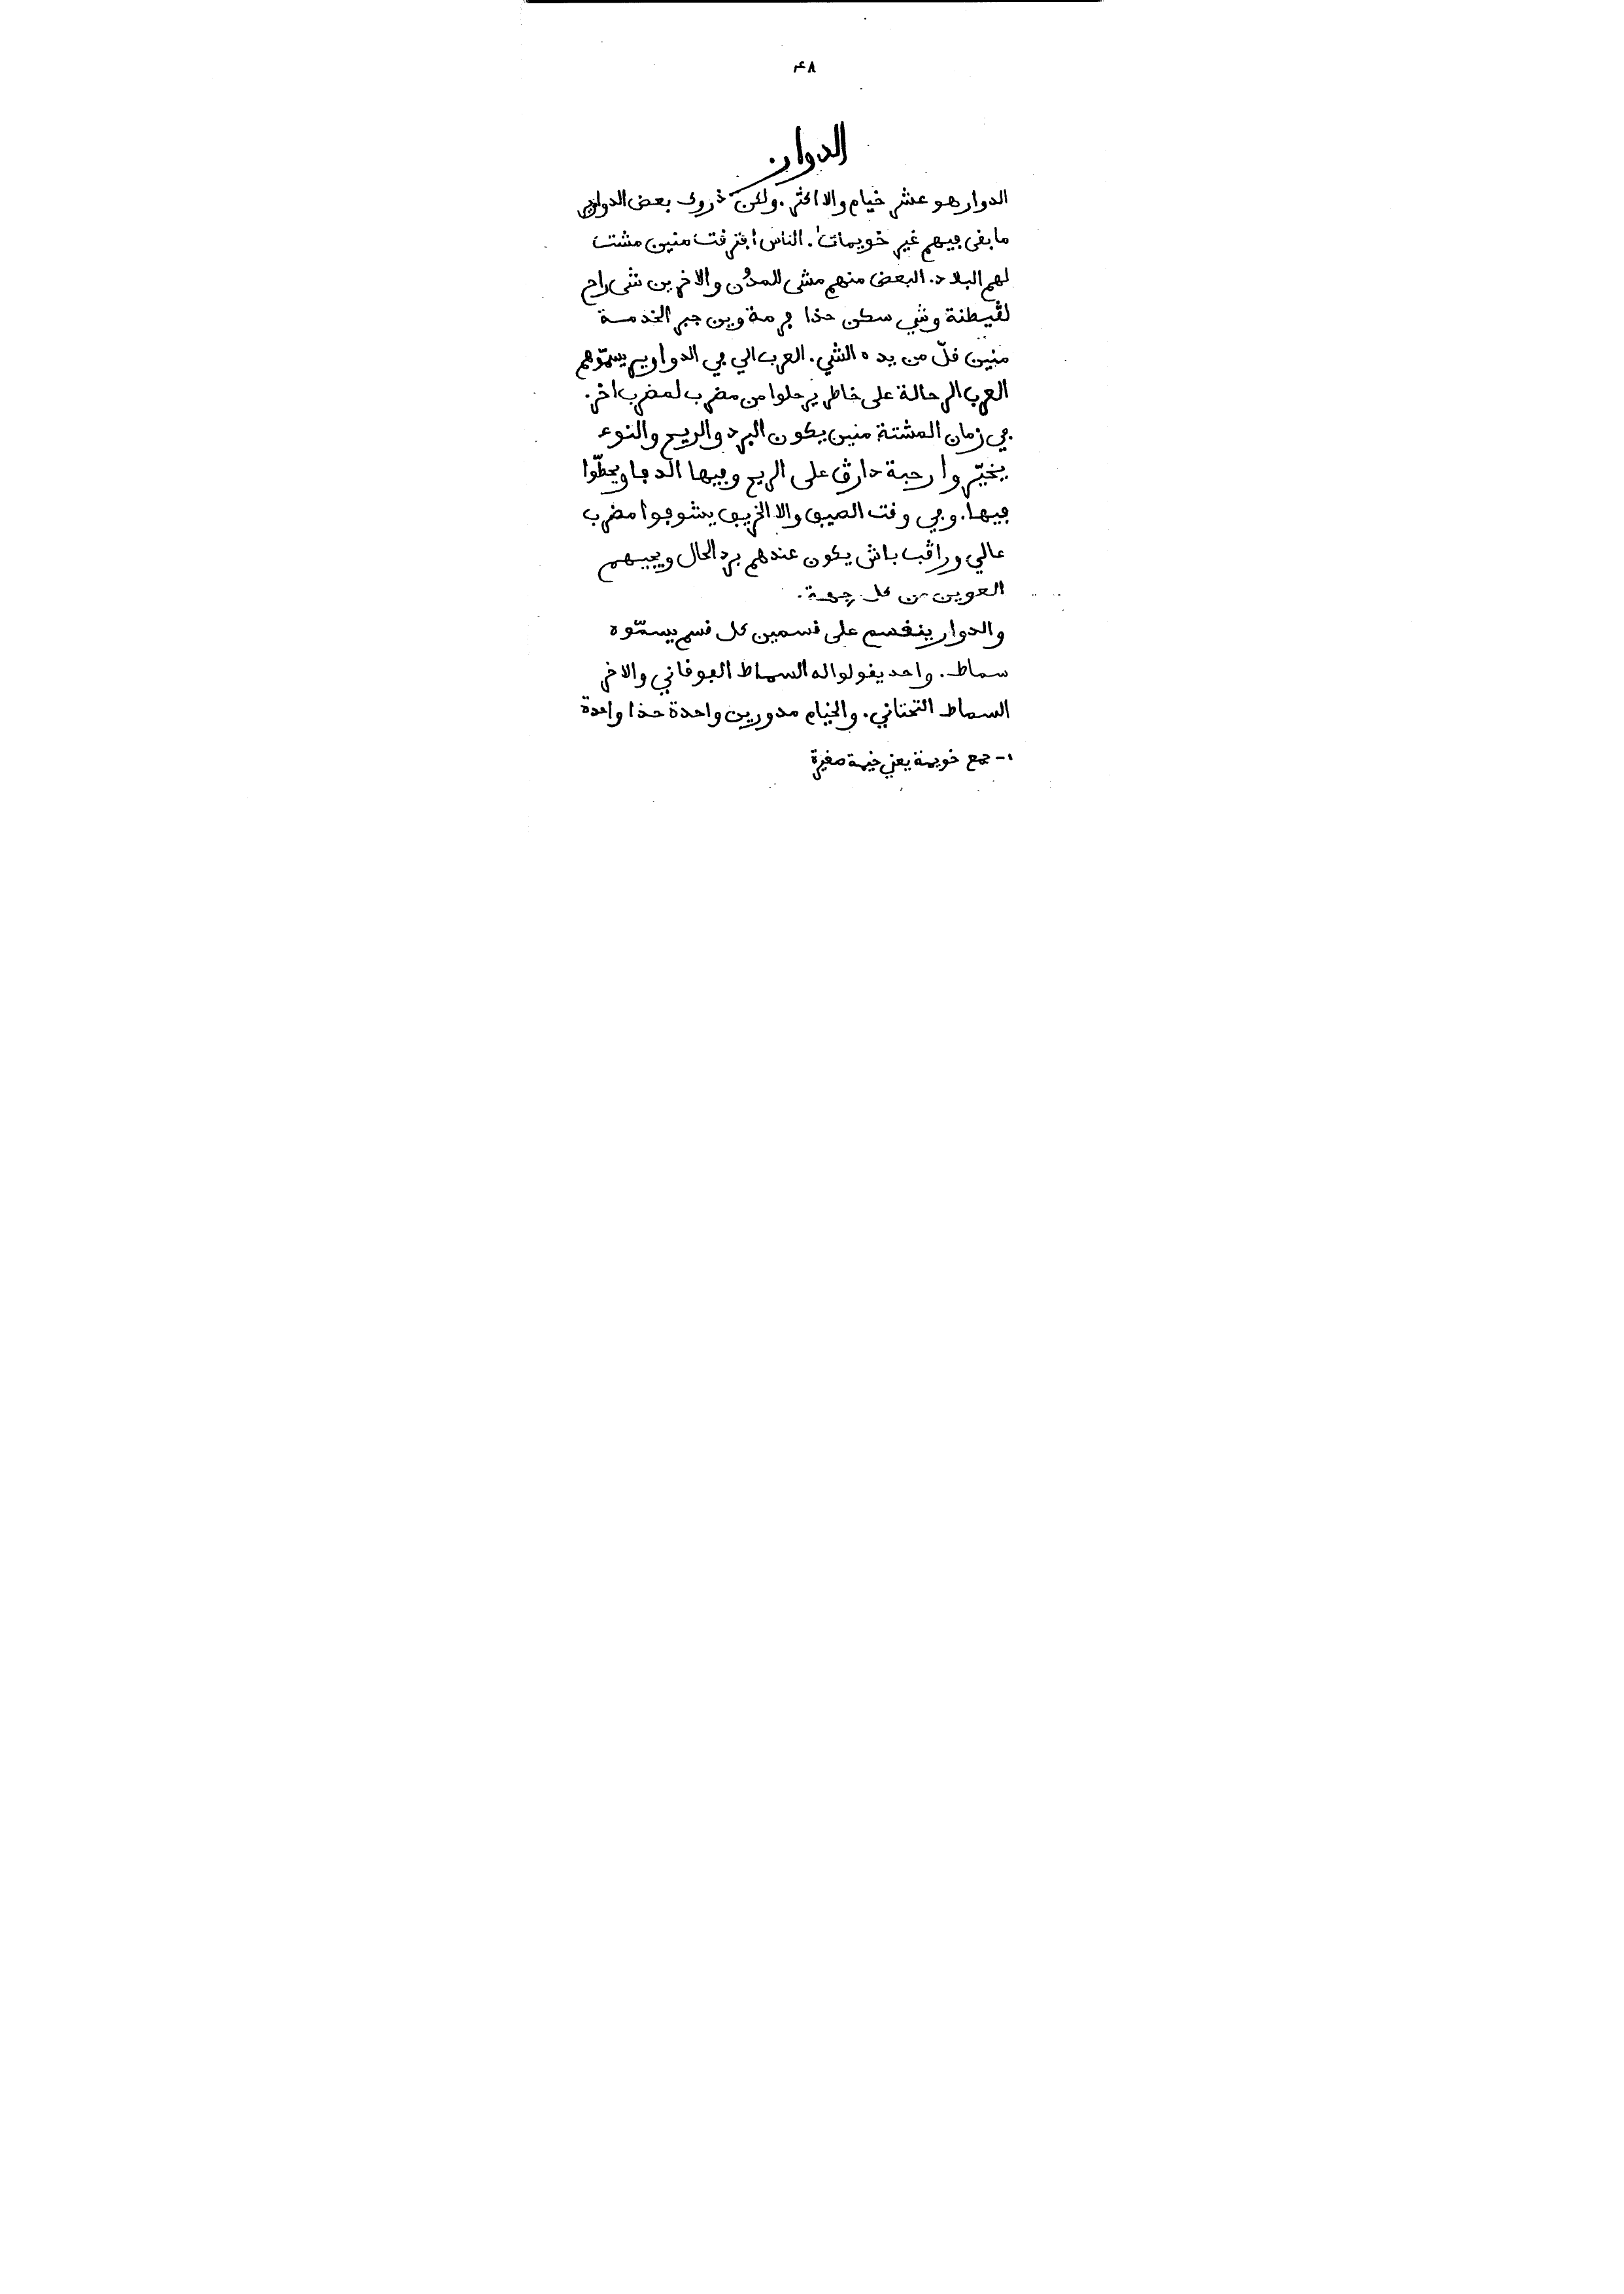 ٤٨
الدوار
الدوار هو عشر خيام والا اكثر. ولكن ذروك بعض الدواوير
ما بڧى ڢيهم غير خويمات١. الناس اڢترڧت منين مشتت
لهم البلاد. البعض منهم مشى للمدُن والاخرين شي راح
لڨيطنة وشي سكن حذا ڢرمة وين جبر الخدمة
منين ڧلّ من يده الشي. العرب الي ڢي الدواوير يسمّوهم
العرب الرحالة على خاطر يرحلوا من مضرب لمضرب اخر.
ڢي زمان المشتة منين يكون البرد والريح والنوء
يخيّروا رحبة دارڨ على الريح وڢيها الدڢا ويحطّوا
ڢيها. وڢي وڧت الصيڢ والا الخريڢ يشوڢوا مضرب
عالي وراڨب باش يكون عندهم برد الحال ويجيهم
العوين من كل جهة.
والدوار ينڧسم على ڧسمين كل ڧسم يسمّوه
سماط. واحد يڧولوا له السماط الڢوڧاني والاخر
السماط التحتاني. والخيام مدورين واحدة حذا واحدة
١- جمع خويمة يعني خيمة صغيرة